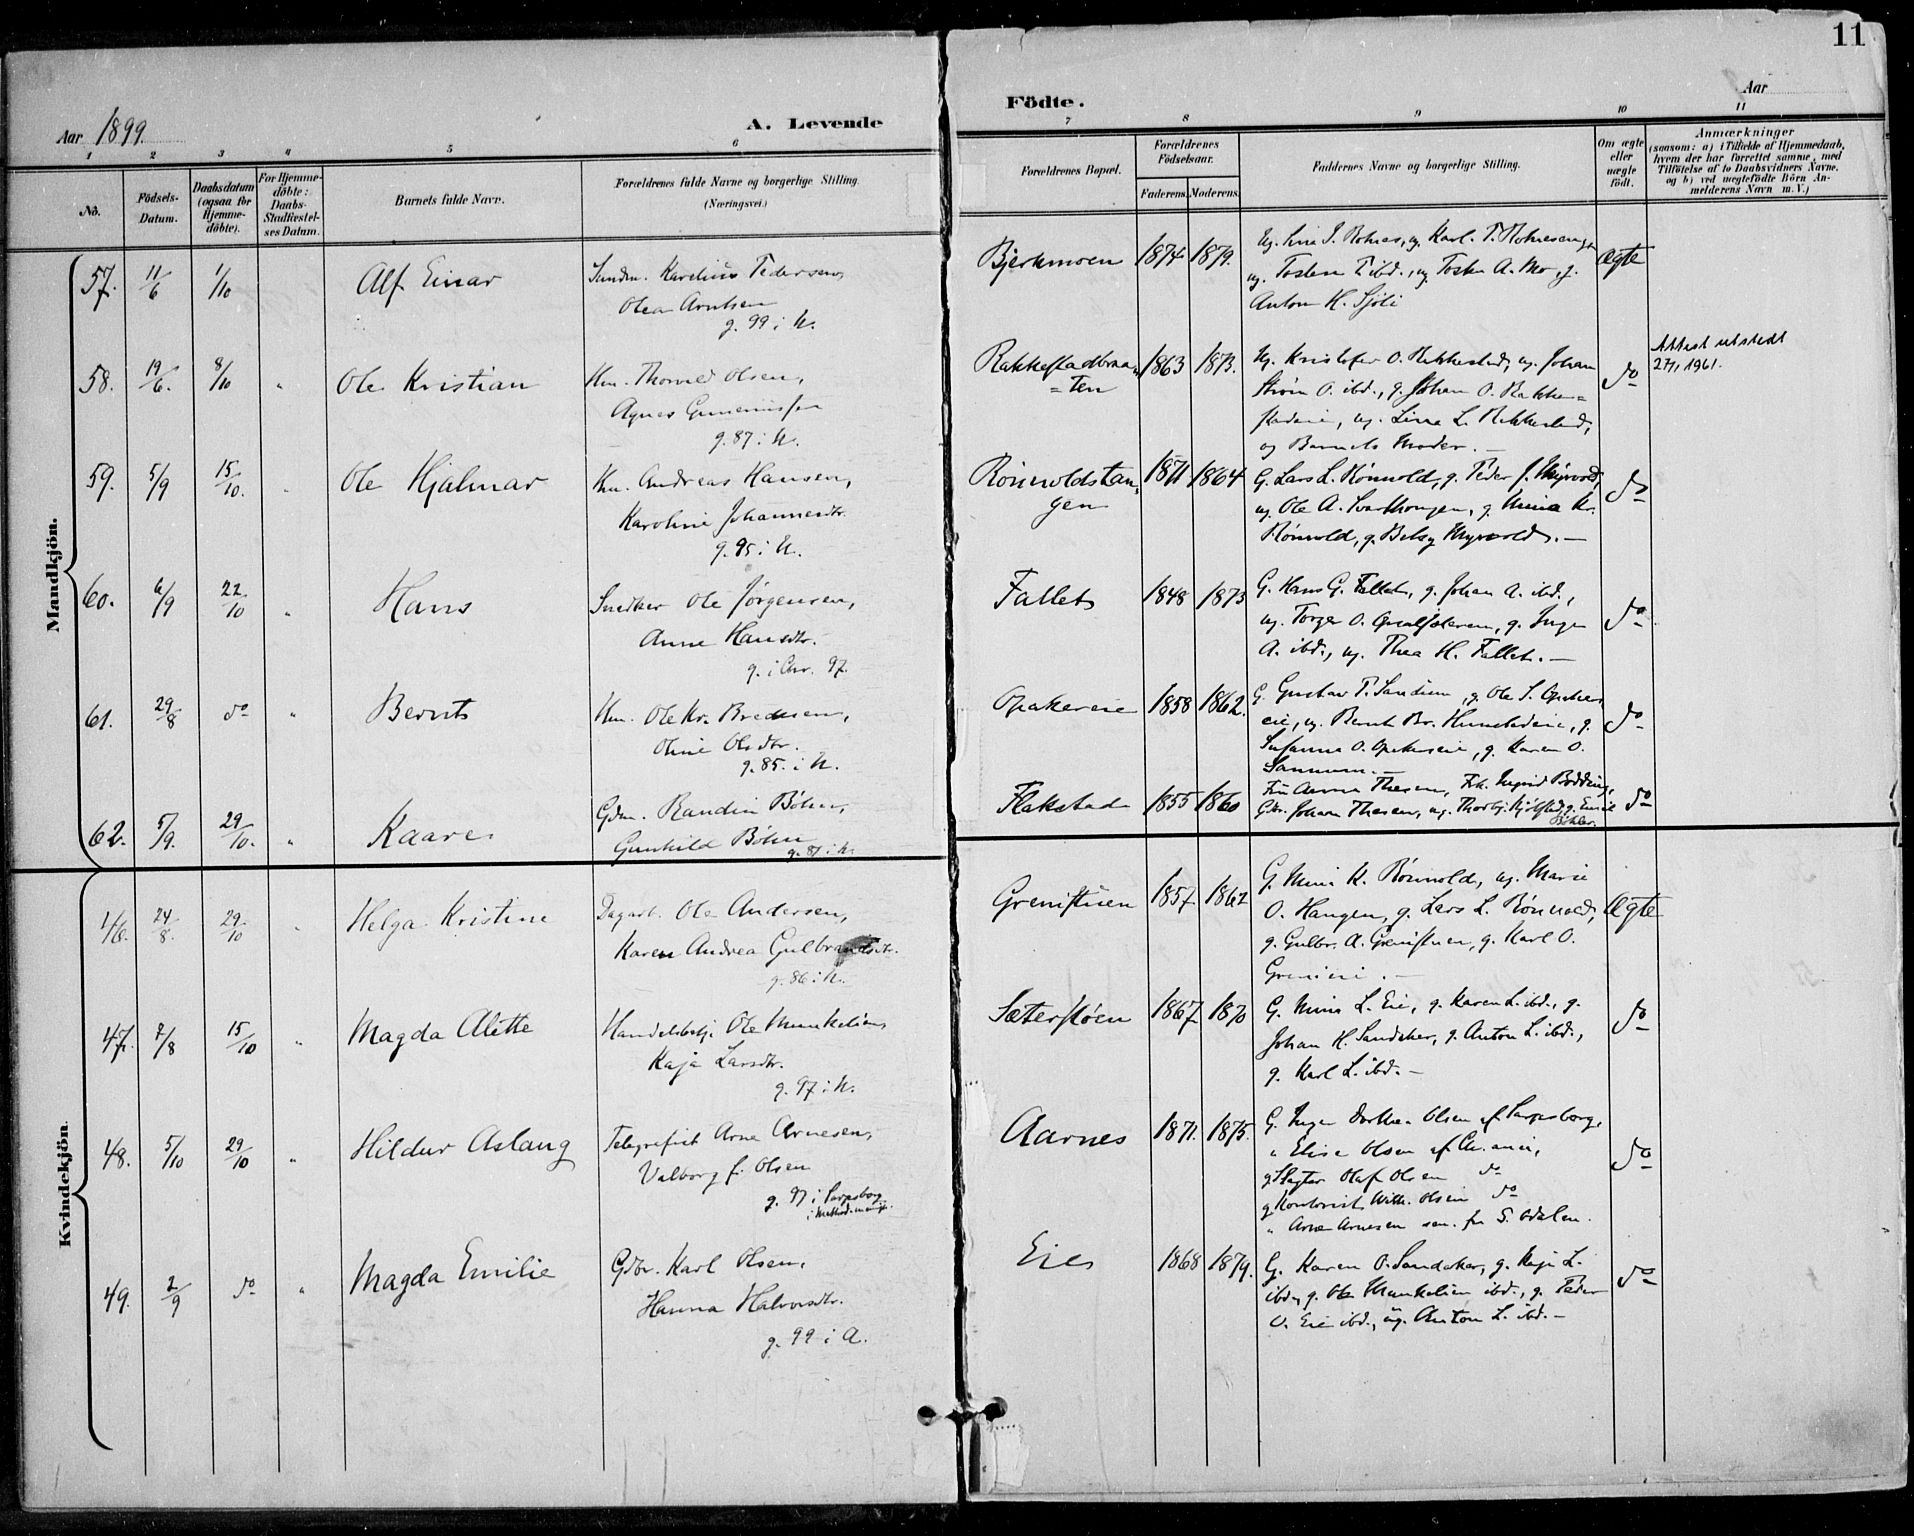 11
Aar 1899.
A. Levende
Födte.
Aar
1 2 3 4 5 6 7 8 9 10 11
No.
Födsels-
Datum.
Daabsdatum
(ogsaa for
Hjemme-
döbte).
For Hjemme-
döbte:
Daabs-
Stadfæstel-
ses Datum.
Barnets fulde Navn.
Forældrenes fulde Navne og borgerlige Stilling.
(Næringsvei.)
Forældrenes Bopæl.
Forældrenes
Födselsaar.
Faderens. Moderens.
Faddernes Navne og borgerlige Stilling.
Om ægte
eller
uægte
födt.
Anmærkninger
(saasom: a) i Tilfælde af Hjemmedaab,
hvem der har forrettet samme, med
Tilföielse af to Daabsvidners Navne,
og b) ved uægtefödte Börn An-
melderens Navn m. V.)
Mandkjön.
57. 11/6 1/10 Alf Einar
Karelius Pedersen,
Olea Arntsen
g. 99 i N.
Bjerkmoen 1874 1879.
Karl. T.
ug. Tosten T. ibd., ug. Tosten A. Mo, g.
Anton H. Sjöli
Ægte
58. 19/6. 8/10 " Ole Kristian
Hm. Thorvald Olsen,
Agnes Guneriussen
g. 87 i N.
Rakkestadbraa=
=ten
1863 1873.
Ug. Kristofer O. Rakkestad, ug. Johan
Ström O. ibd., g. Johan O. Rakke=
stadeie, ug. Lina L. Rakkestad,
og Barnets Moder. —
do
Attest utstedt
27/1 1961.
59. 5/9 15/10. " Ole Hjalmar
Hm. Andreas Hansen,
Karoline Johannesdtr.
g. 95 i N.
Rönnoldstan=
gen
1871 1864
G. Lars L. Rönnold, g. Peder J. Myrvold,
ug. Ole A. Svarthougen, g. Mina Kr.
Rönnold, g. Betsy Myrvold. —
do
60. 6/9 22/10 " Hans
Snedker Ole Jørgensen,
Anne Hansdtr.
g. i Chr. 97.
Fallet 1848 1873
G. Hans G. Fallet, g. Johan A. ibd.,
ug. Torger O. g. Inger
A. ibd., ug. Thea H. Fallet. —
do
61. 29/8 do " Bernt
Hm. Ole Kr. Bredesen,
Oline Olsdtr.
g. 85. i N.
Opakereie 1858 1862.
G. Gustav P. Sandum, g. Ole S. Opaker
eie, ug. Bernt Br. Hunstadeie, g.
Susanna O. Opakereie, g. Karen O.
Sannum. —
do
62. 5/9. 29/10. " Kaare
Gdm. Randin Böhn,
Gunhild Böhn
g. 81 i N.
Flakstad 1855 1860
Fru Anna Thesen, Frk. Ingrid Bödding,
Gdr. Johan Thesen, ug. Thorbj. g. Emil
Böhler.
do
Kvindekjön.
46. 24/8. 29/10 " Helga Kristine
Dagarb. Ole Andersen,
Karen Andrea Gulbrandsdtr.
g. 86 i N.
Grenistuen 1857 1862
G. Mina K. Rönnold, ug. Marie
O. Haugen, g. Lars L. Rönnold,
g. Gulbr. A. Grenistuen, g. Karl O.
Grenieie. —
Ægte
47. 7/8 15/10 " Magda Alette
Handelsbetj. Ole Munkelien,
Kaja Larsdtr.
g. 97 i N.
Sæterstöen 1867 1870
G. Mina L. Eie, g. Karen L. ibd., g.
Johan H. Sandaker, g. Anton L. ibd.,
g. Karl L. ibd. —
do
48. 5/10 29/10 " Hildur Aslaug
Telegrafist Arne Arnesen,
Valborg f. Olsen
g. 97 i Sarpsborg
i Methodistmenigh.
Aarnes 1871. 1875.
G. Inger Dorthea Olsen af Sarpsborg,
" Elise Olsen af Chr.ania,
g. Slagter Olaf Olsen do
g. Kontorist Wilh. Olsen do
" Arne Arnesen sen. fra S. Odalen.
do
49. 2/9 do " Magda Emilie
Gdbr. Karl Olsen,
Hanna Halvorsdtr.
g. 99 i A.
Eie 1868 1879.
G. Karen O. Sandaker, g. Kaja L.
ibd., g. Ole Munkelien ibd., g. Peder
O. Eie ibd., ug. Anton L. ibd. —
do